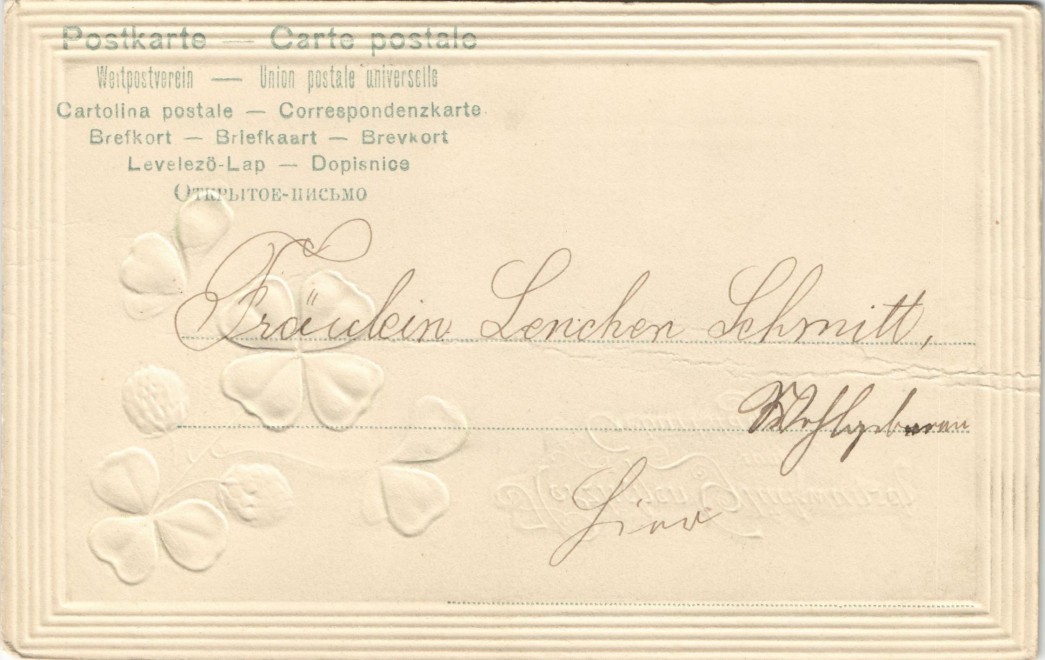 Postkarte — Carte postale
Weltpostverein — Union postale universelle
Cartolina postale — Correspondenzkarte
Brefkort — Briefkaart — Brevkort
Levelező-Lap — Dopisnice
Открытое-письмо
Fräulein Lenchen Schmitt,
Wohlgeboren
Hier